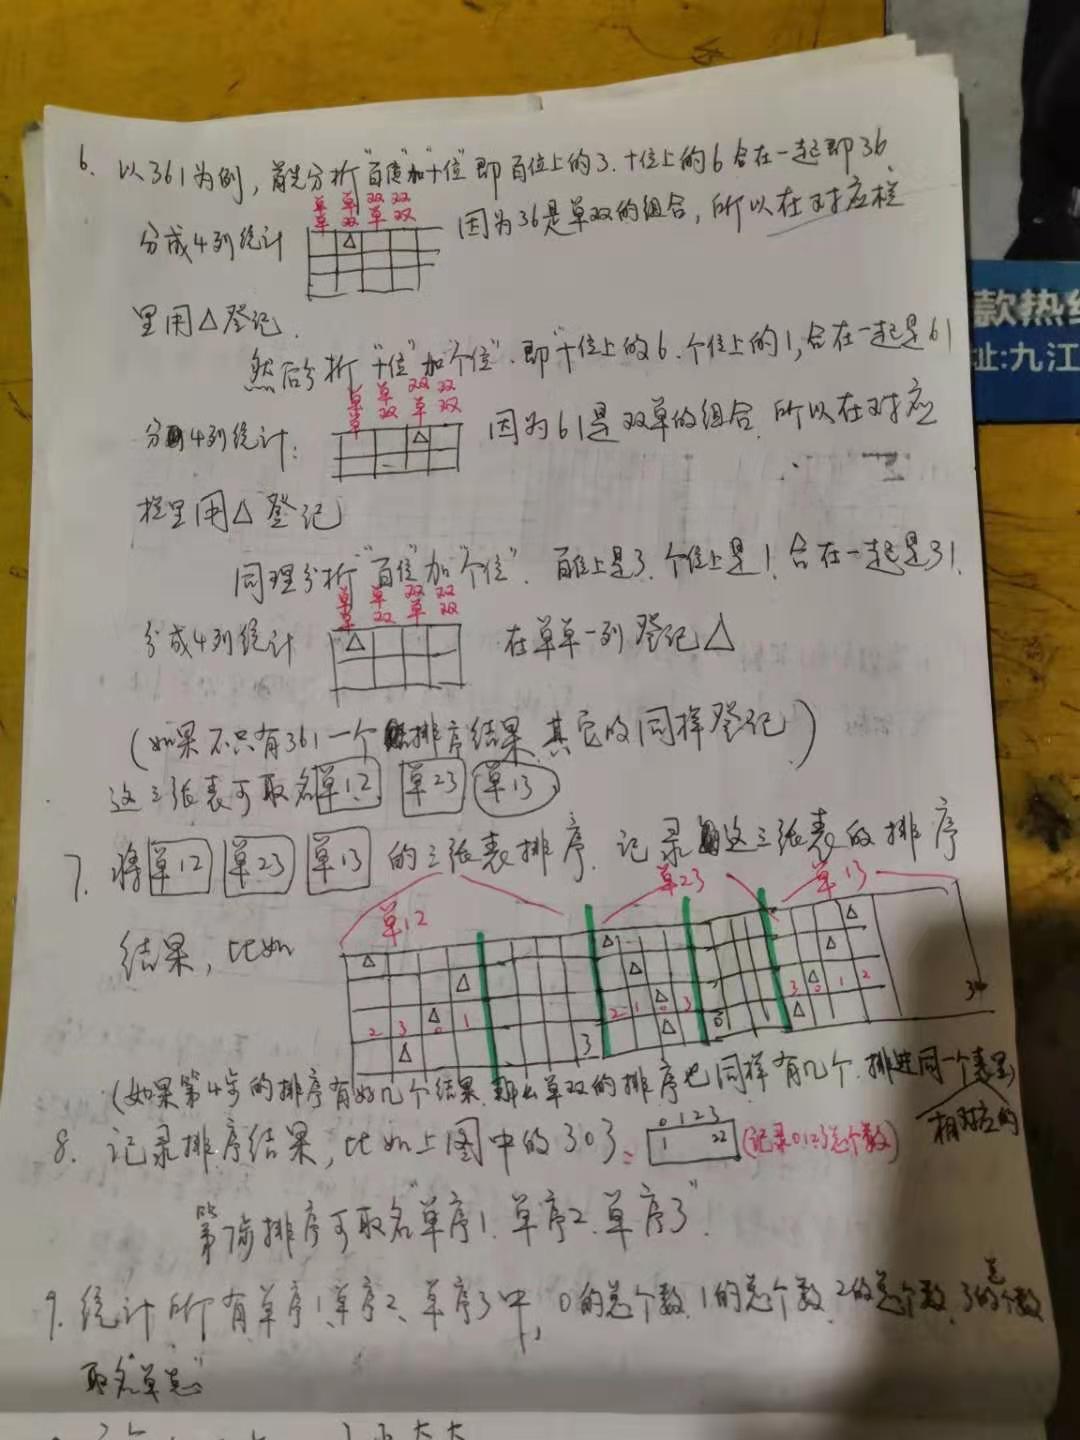 6. 以361为例，首先分析"百位"加"十位"即百位上的3.十位上的6合在一起即36
单 单 双 双
单 双 单 双
分成4列统计 因为36是单双的组合，所以在对应栏
里用△登记.
然后分析"十位"加"个位".即"十位上的6.个位上的1,合在一起是61
单 单 双 双
单 双 单 双
分4列统计: 因为61是双单的组合.所以在对应
栏里用△登记
同理分析"百位"加"个位".百位上是3.个位上是1.合在一起是31.
单 单 双 双
单 双 单 双
分成4列统计 在单单一列登记△
(如果不只有361一个排序结果.其它的同样登记)
这三张表可取名单12 单23 单13
7. 将单12 单23 单13 的三张表排序.记录这三张表的排序
单12 单23 单13
结果，比如
2 3 0 1 3 2 1 0 3 0 3 0 1 2 3
(如果第4步的排序有好几个结果.那么单双的排序也同样有几个.排进同一个表里)
相对应的
8. 记录排序结果，比如上图中的303:
0 1 2 3
1 22
(记录0123总个数)
第7步排序可取名"单序1.单序2.单序3".
9. 统计所有单序1.单序2.单序3中，0的总个数.1的总个数.2的总个数.3的总个数
取名"单总"
款热线
址:九江